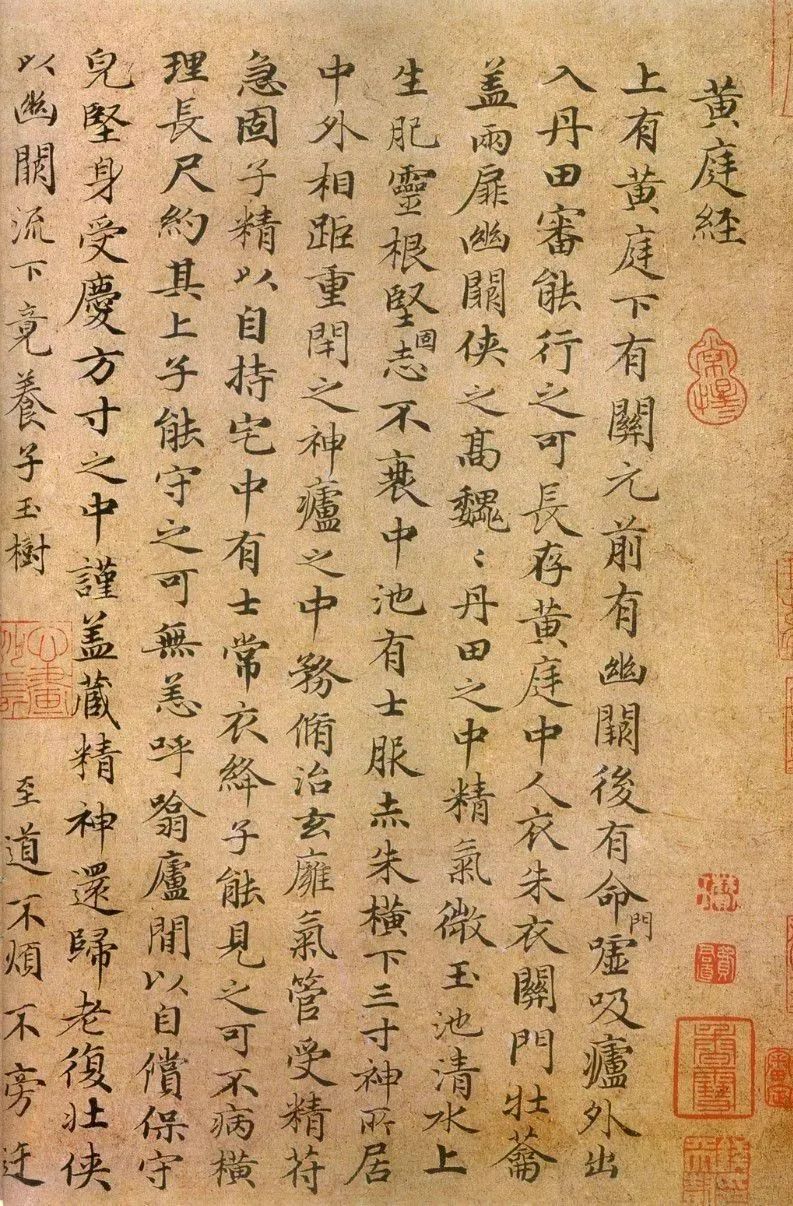 黄庭經
上有黄庭下有關元前有幽闕後有命門噓吸廬外出
入丹田審能行之可長存黄庭中人衣朱衣關門壯蘥
盖兩扉幽闕俠之高魏〻丹田之中精氣微玉池清水上
生肥靈根堅固志不衰中池有士服赤朱横下三寸神所居
中外相距重閇之神廬之中務脩治玄廱氣管受精苻
急固子精以自持宅中有士常衣絳子能見之可不病横
理長尺約其上子能守之可無恙呼噏廬間以自償保守
皃堅身受慶方寸之中謹盖蔵精神還歸老復壯俠
以幽闕流下竟養子玉樹 至道不煩不旁迕